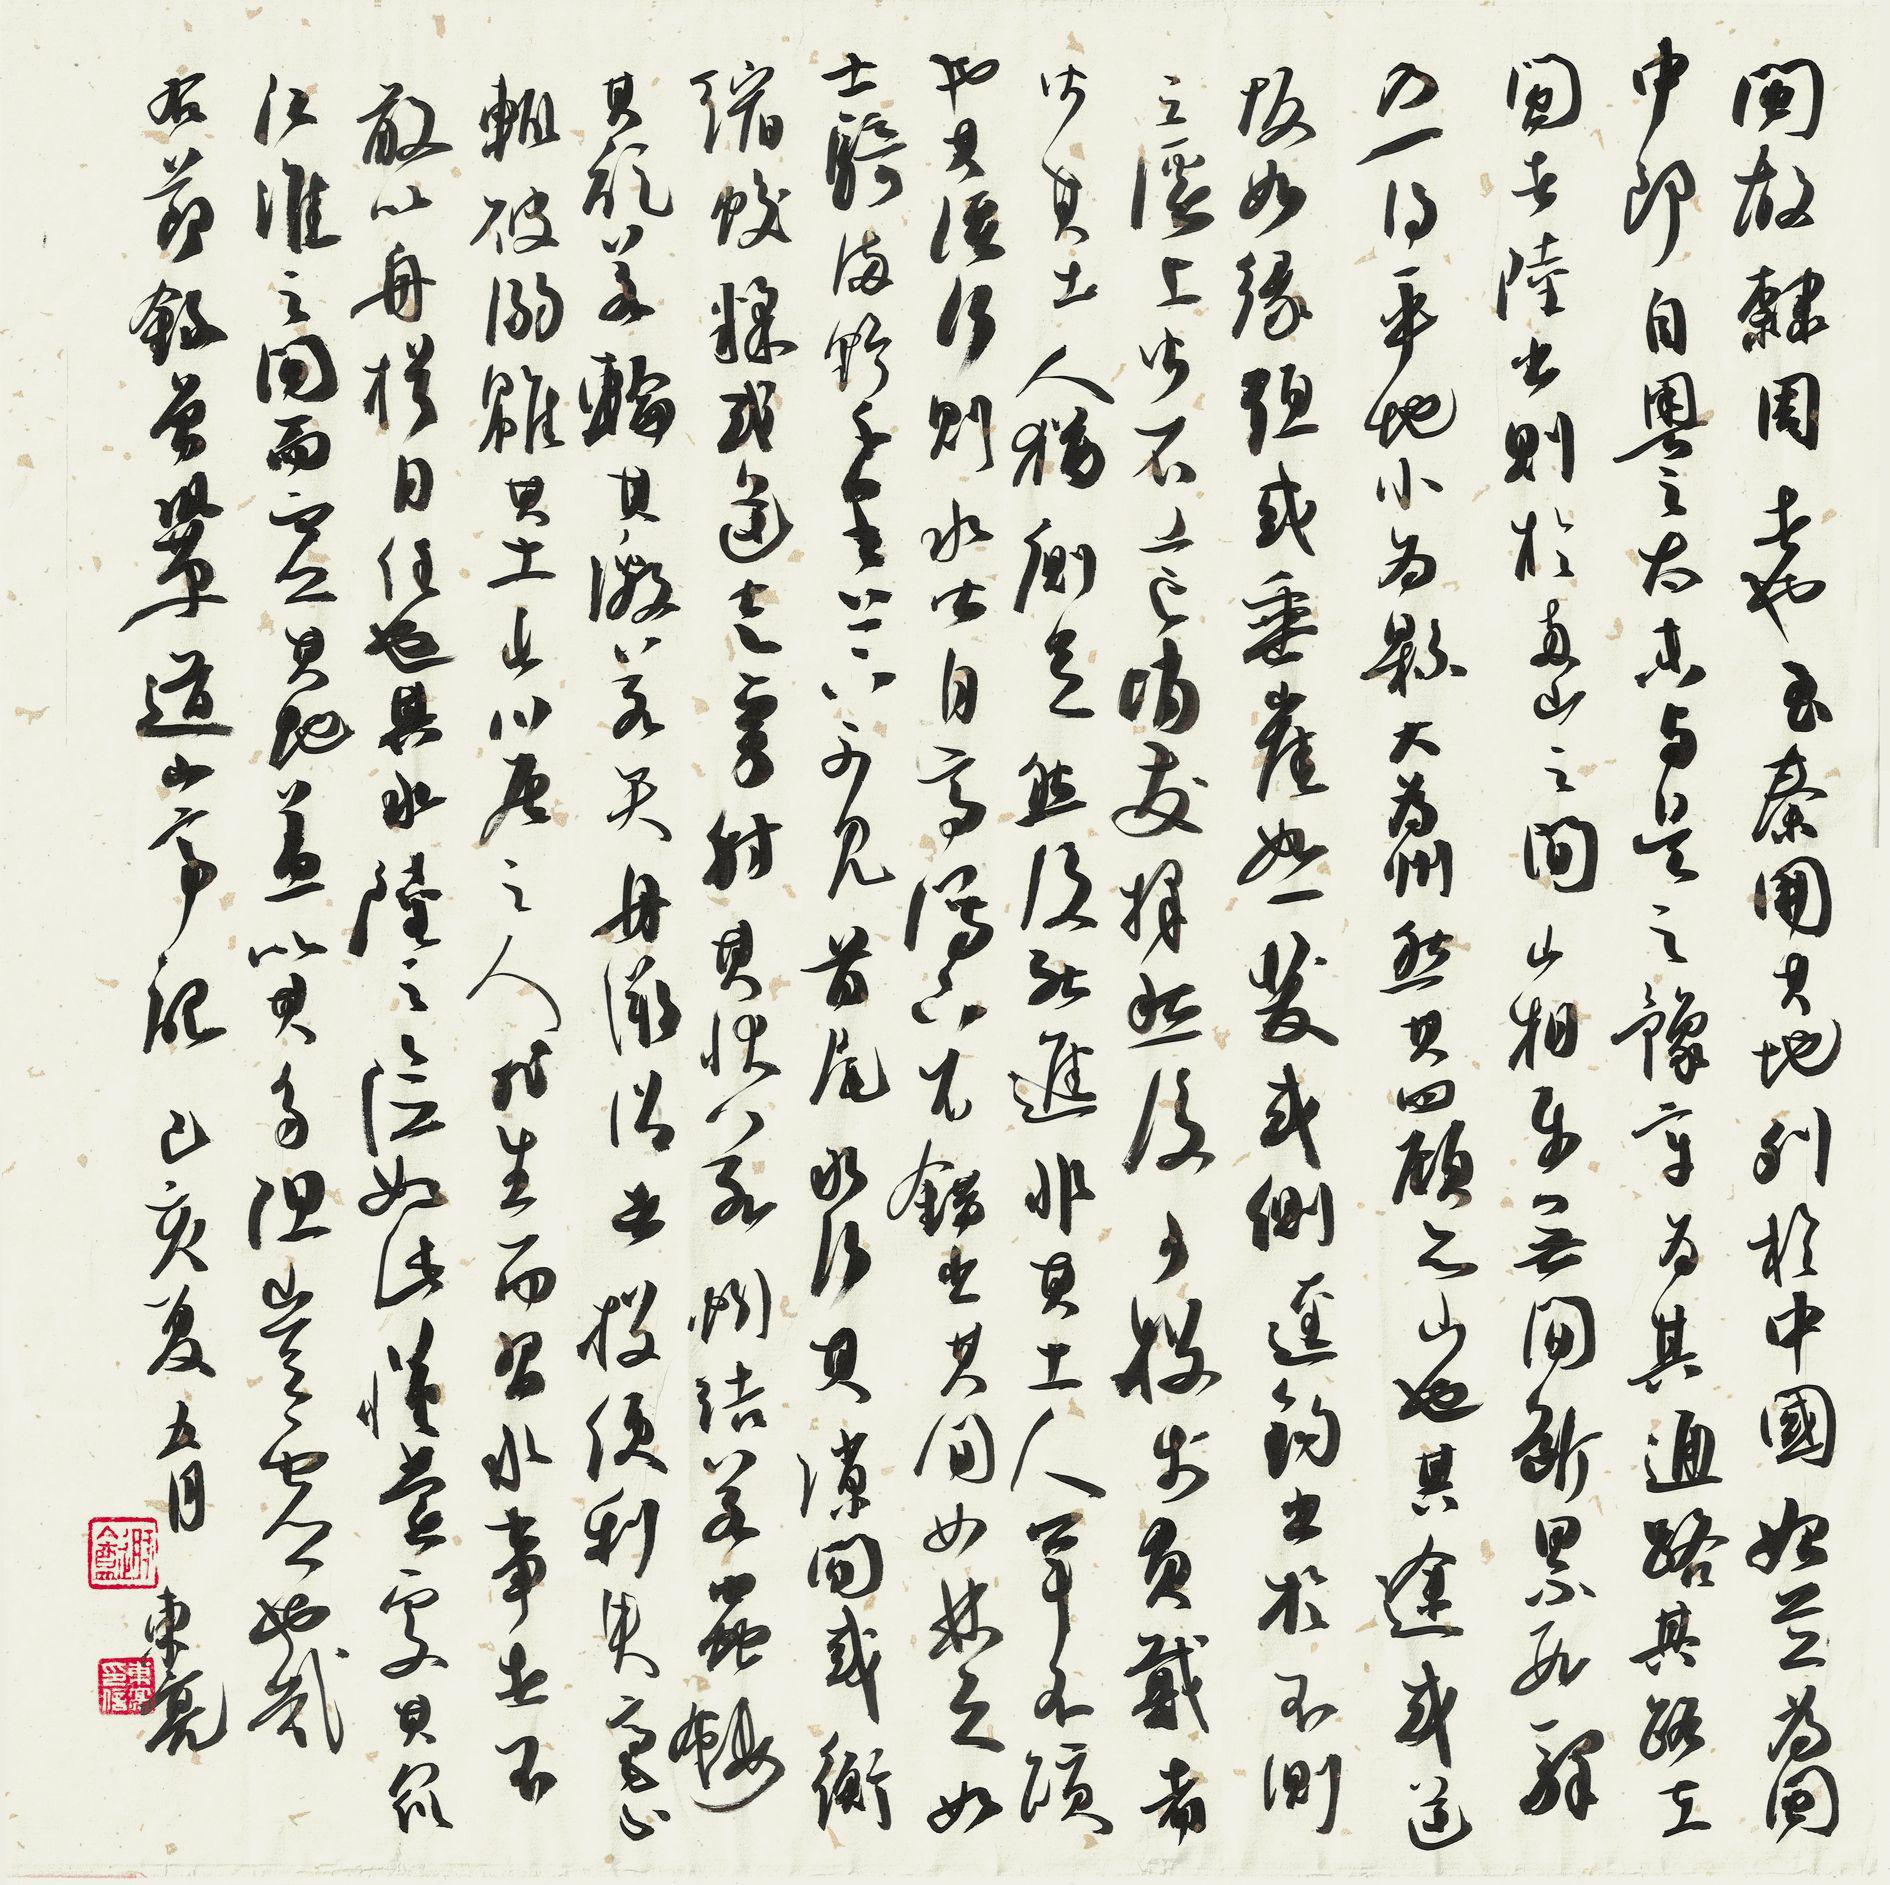 閩故隸周者也至秦開其地列於中國始並為閩
中郡自粵之太末與吳之豫章為其通路其路在
閩者陸出則於兩山之間山相屬無間斷累數驛
乃一得平地小為縣大為州然其四顧亦山也其途或逆
坂如緣絙或垂崖如一髮或側逕鉤出於不測
之溪上皆石芒峭發擇然後可投步負戴者
皆其土人猶側足然後能進非其土人罕不躓
也其溪行則水皆自高瀉下石錯出其間如林立如
士騎滿野千里下上不見首尾水行其隙間或衡
縮蟉糅或逆走旁射其狀若蚓結若蟲鏤
其旋若輪其激若矢舟溯沿者投便利失毫分
輒破溺雖其土長川居之人非生而習水事者不
敢以舟楫自任也其水陸之險如此漢嘗處其眾
江淮之間而虛其地蓋以其多阻豈虛也哉
右節錄曾鞏道山亭記 己亥夏五月 東亮
東亮印信